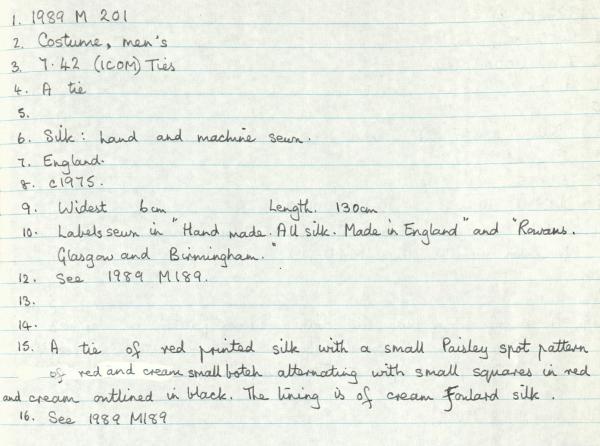 1. 1989 M 201
2. Costume, men's
3. 7.42 (ICOM) Ties
4. A tie
5.
6. Silk: hand and machine sewn.
7. England.
8. c1975.
9. Widest 6cm Length. 130cm
10. Labels sewn in "Hand made. All silk. Made in England" and "Rowans.
Glasgow and Birmingham."
12. See 1989 M189.
13.
14.
15. A tie of red printed silk with a small Paisley spot pattern
of red and cream small boteh alternating with small squares in red
and cream outlined in black. The lining is of cream Foulard silk.
16. See 1989 M189